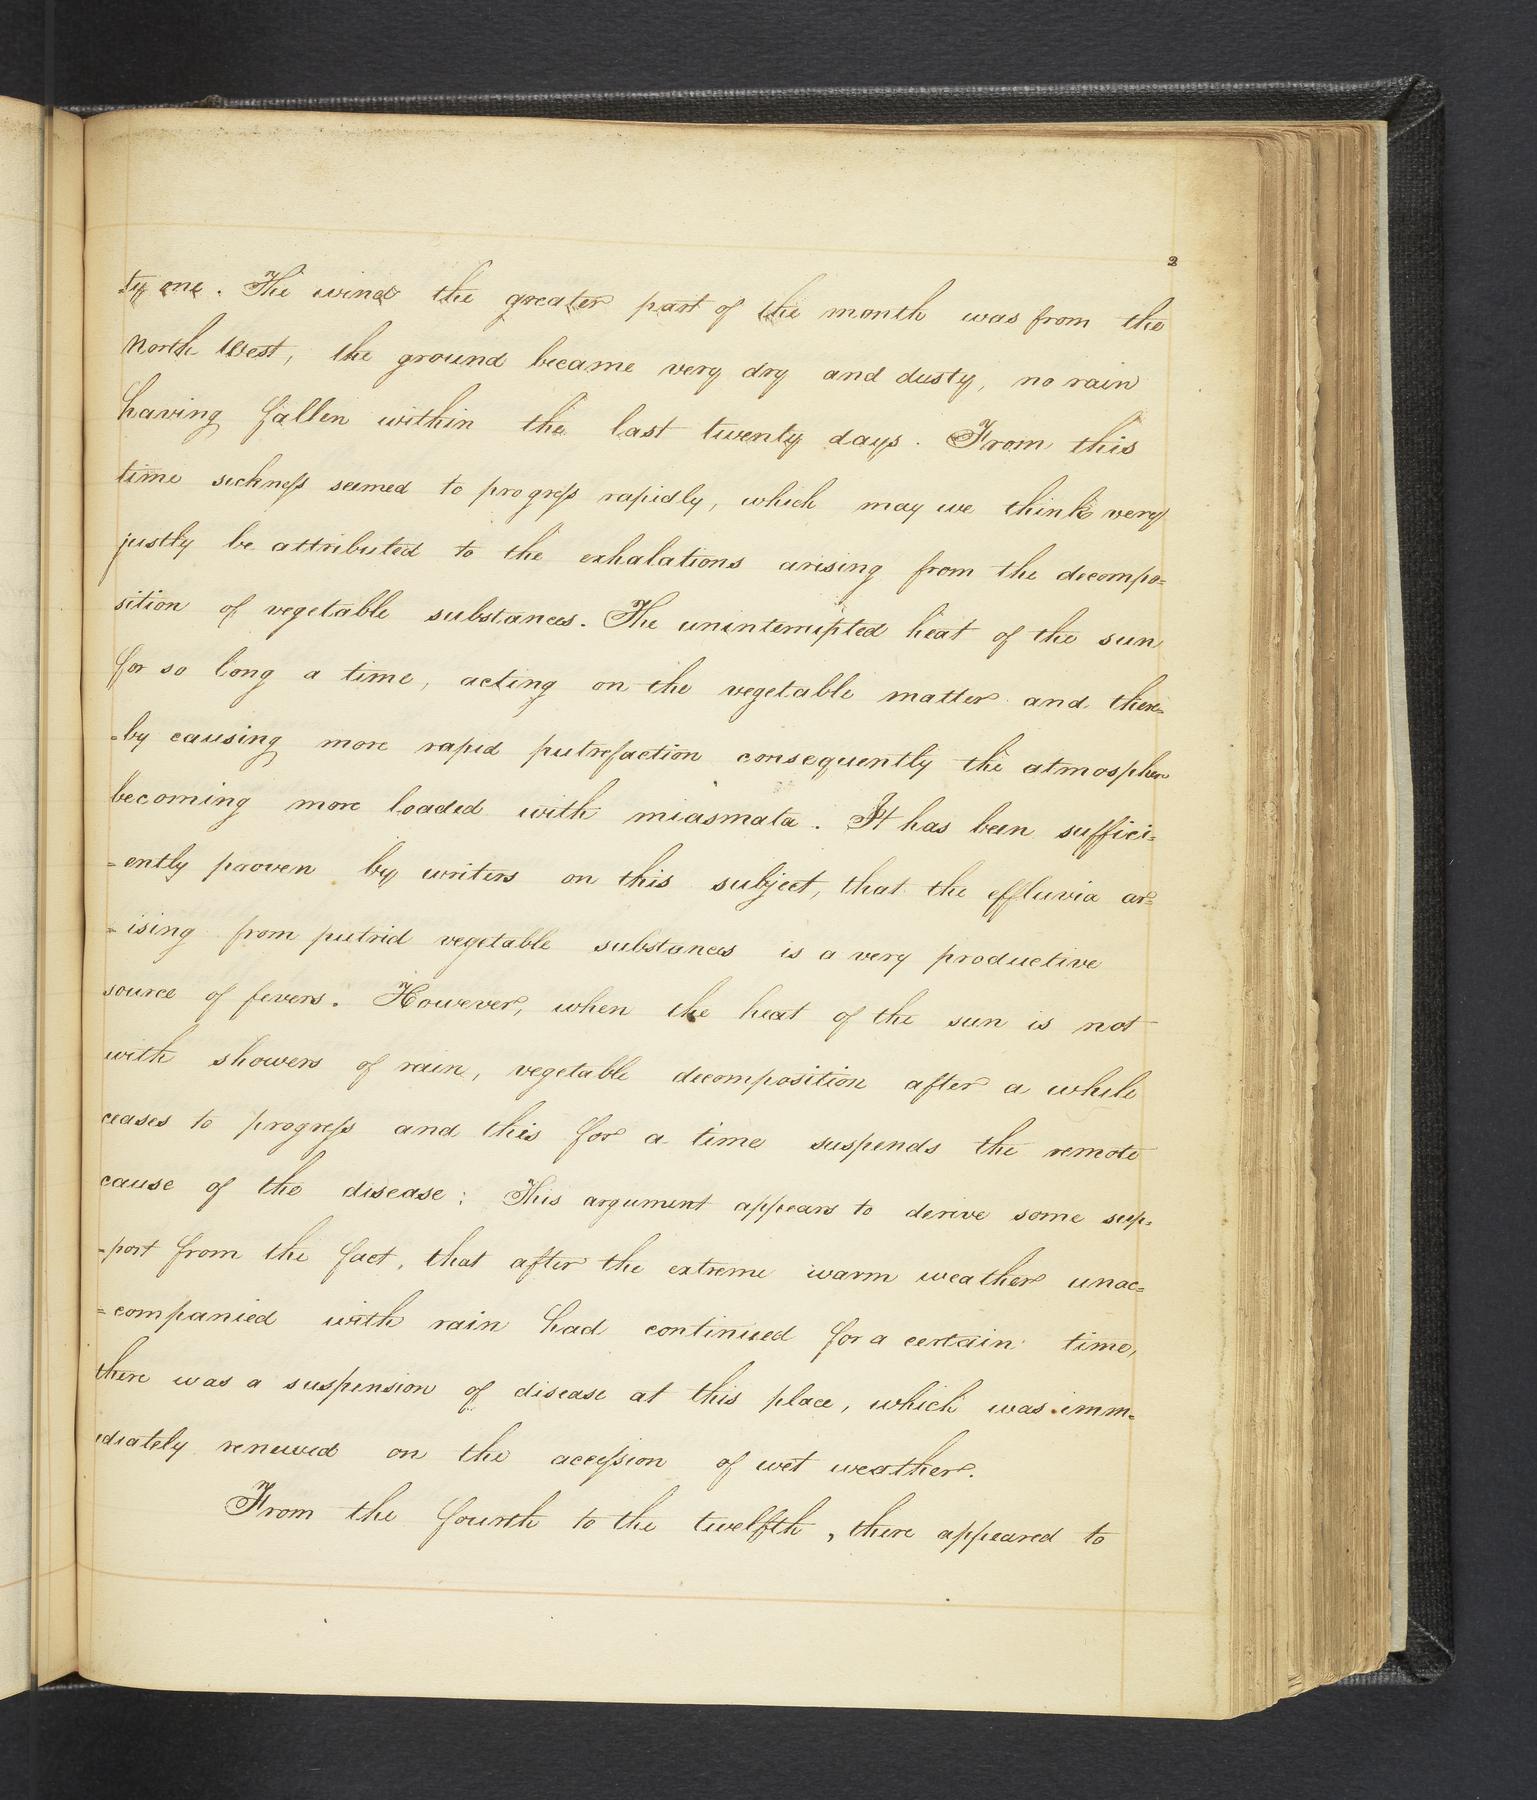 2
-ty one. The wind the greater part of the month was from the
North West, the ground became very dry and dusty, no rain
having fallen within the last twenty days. From this
time sickness seemed to progress rapidly, which may we think very
justly be attributed to the exhalations arising from the decompo=
sition of vegetable substances. The uninterrupted heat of the sun
for so long a time, acting on the vegetable matter and there=
=by causing more rapid putrefaction consequently the atmosphere
becoming more loaded with miasmata. It has been suffici=
=ently proven by writers on this subject, that the effluvia ar=
=ising from putrid vegetable substances is a very productive
source of fevers. However, when the heat of the sun is not
with showers of rain, vegetable decomposition after a while
ceases to progress and this for a time suspends the remote
cause of the disease; This argument appears to derive some sup=
=port from the fact, that after the extreme warm weather unac=
=companied with rain had continued for a certain time,
there was a suspension of disease at this place, which was imm=
ediately renewed on the accession of wet weather.
From the fourth to the twelfth, there appeared to